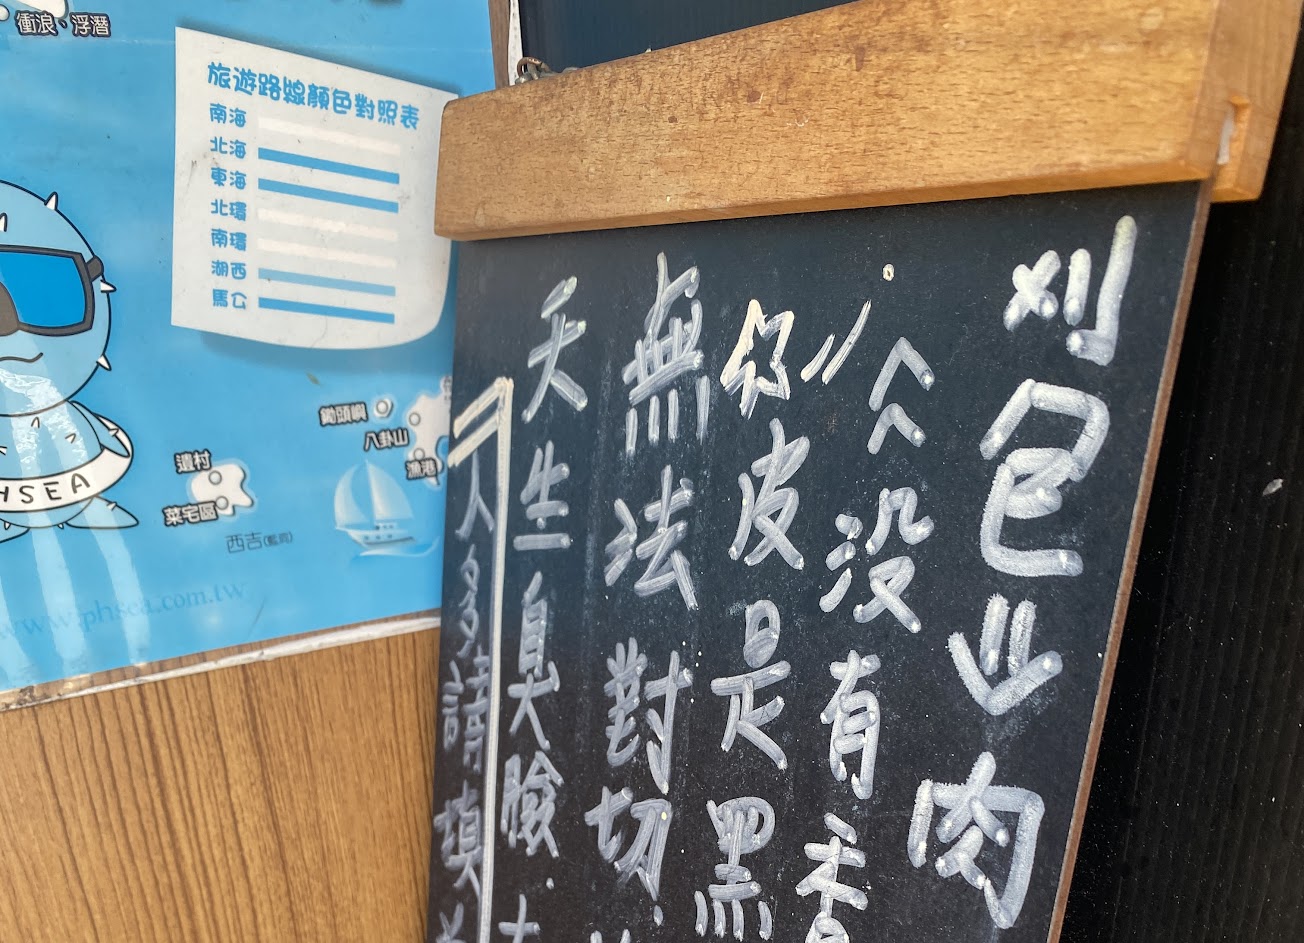 衝浪、浮潛
旅遊路線顏色對照表
南海
北海
東海
北環
南環
湖西
馬公
鋤頭嶼
八卦山
漁港
遺村
菜宅區
西吉(藍洞)
www.phsea.com.tw
HSEA
刈包 肉
《沒有香
皮是黑
無法對切.
天生臭臉.
人多請填